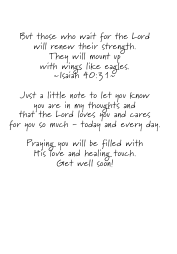 But those who wait for the Lord
will renew their strength.
They will mount up
with wings like eagles.
~Isaiah 40:31~
Just a little note to let you know
you are in my thoughts and
that the Lord loves you and cares
for you so much - today and every day.
Praying you will be filled with
His love and healing touch.
Get well soon!